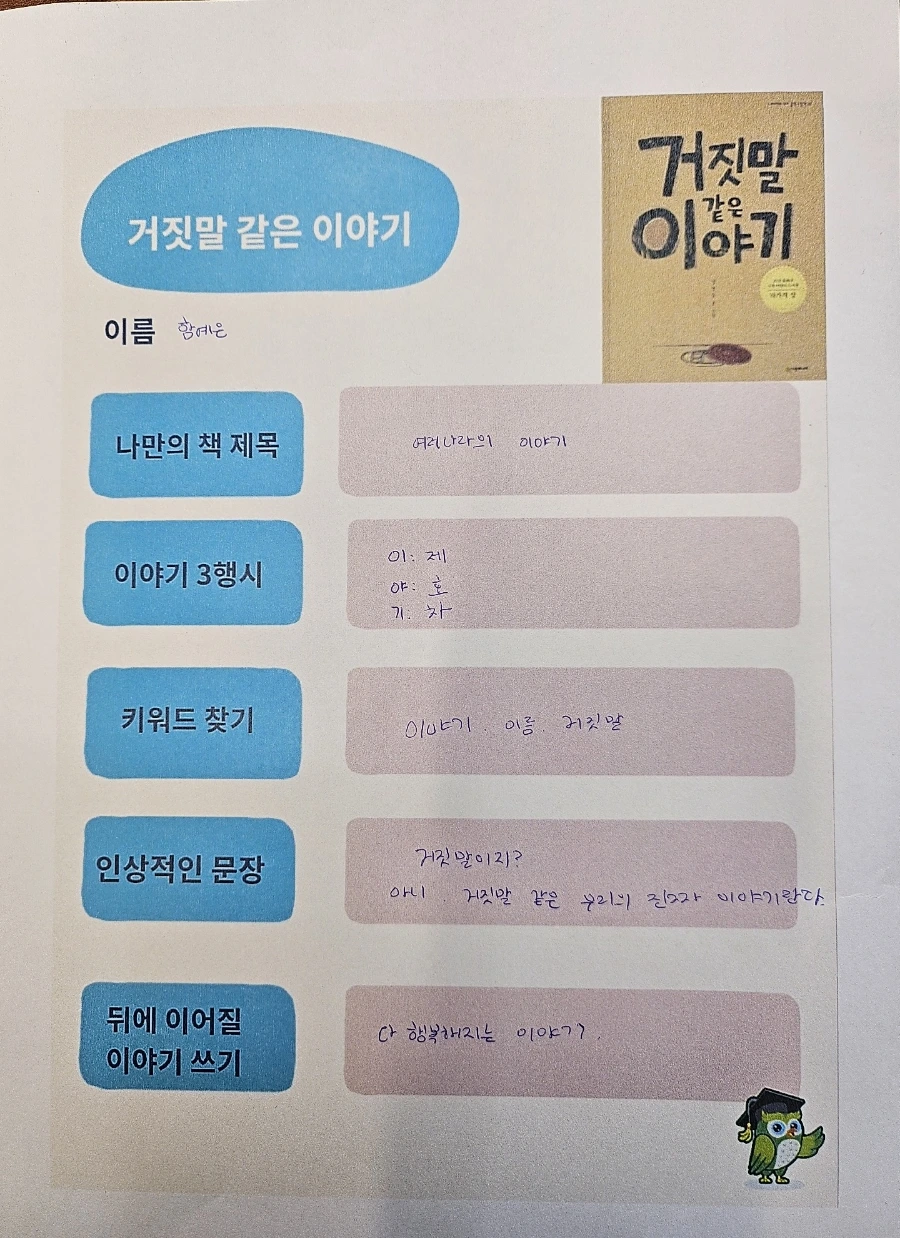 거짓말
같은
이야기
거짓말 같은 이야기
이름 함예은
나만의 책 제목
여러나라의 이야기
이야기 3행시
이: 제
야: 호
기: 차
키워드 찾기
이야기 이름. 거짓말
인상적인 문장
거짓말이지?
아니. 거짓말 같은 우리의 진짜 이야기란다.
뒤에 이어질
이야기 쓰기
다 행복해지는 이야기.